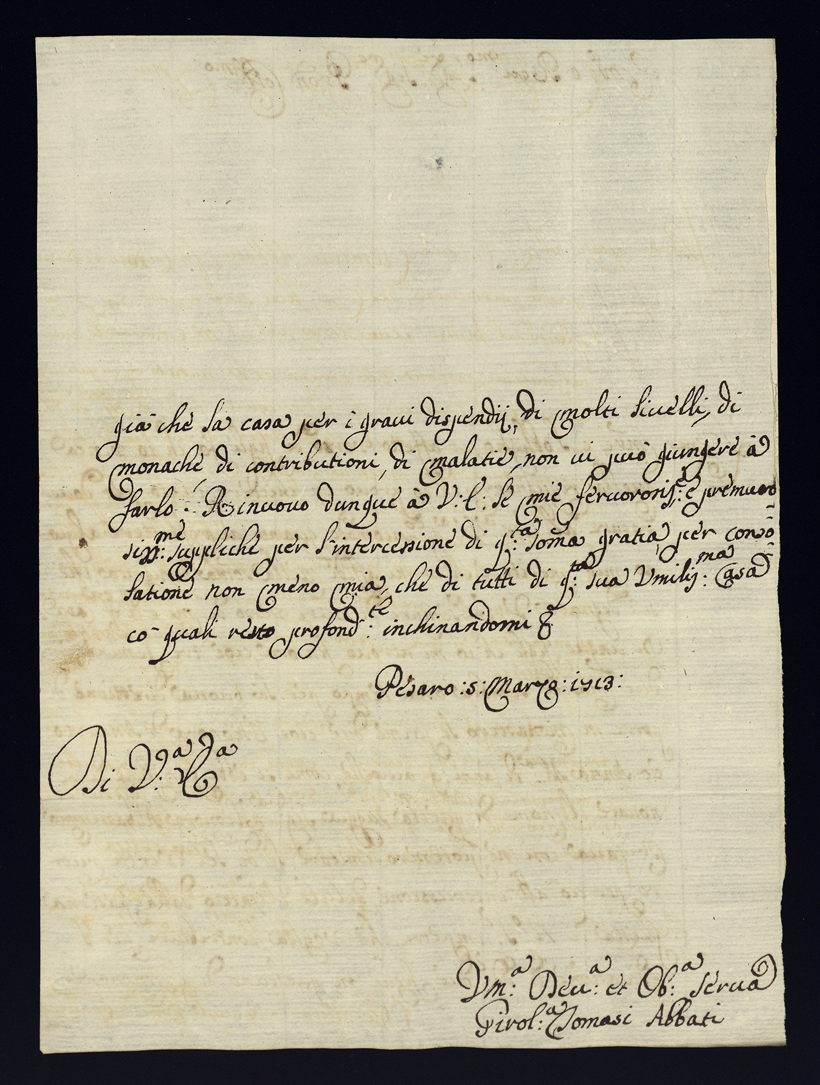 già che la casa per i gravi dispendij, di molti livelli, di
monache di contributioni, di malatie, non vi può giungere à
farlo. Rinuovo dunque à V: E: le mie fervororiss:e e premuro
siss:me suppliche per l'intercessione di q:ta soma gratia, per conso
latione non meno mia, che di tutti di q:ta sua Umiliss:ma Casa
co' quali resto profond:te inchinandomi &
Pesaro :5: Marzo :1713:
Di V:a E:a
Um:a Dev:a et Ob:a Serva
Girol:a Tomasi Abbati